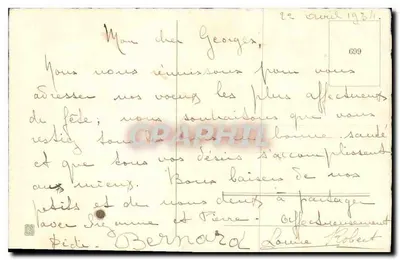 22 avril 1931.
Mon cher Georges,
699
Nous nous réunissons pour vous
adresser nos voeux les plus affectueux
de fête; nous souhaitons que vous
restiez bonne santé
et que tous vos désirs s'accomplissent
au mieux. Bons baisers de nos
petits et de nous deux à partager
avec Suzanne et Pierre. affectueusement
Bernard Louise Robert
CPAPHIL